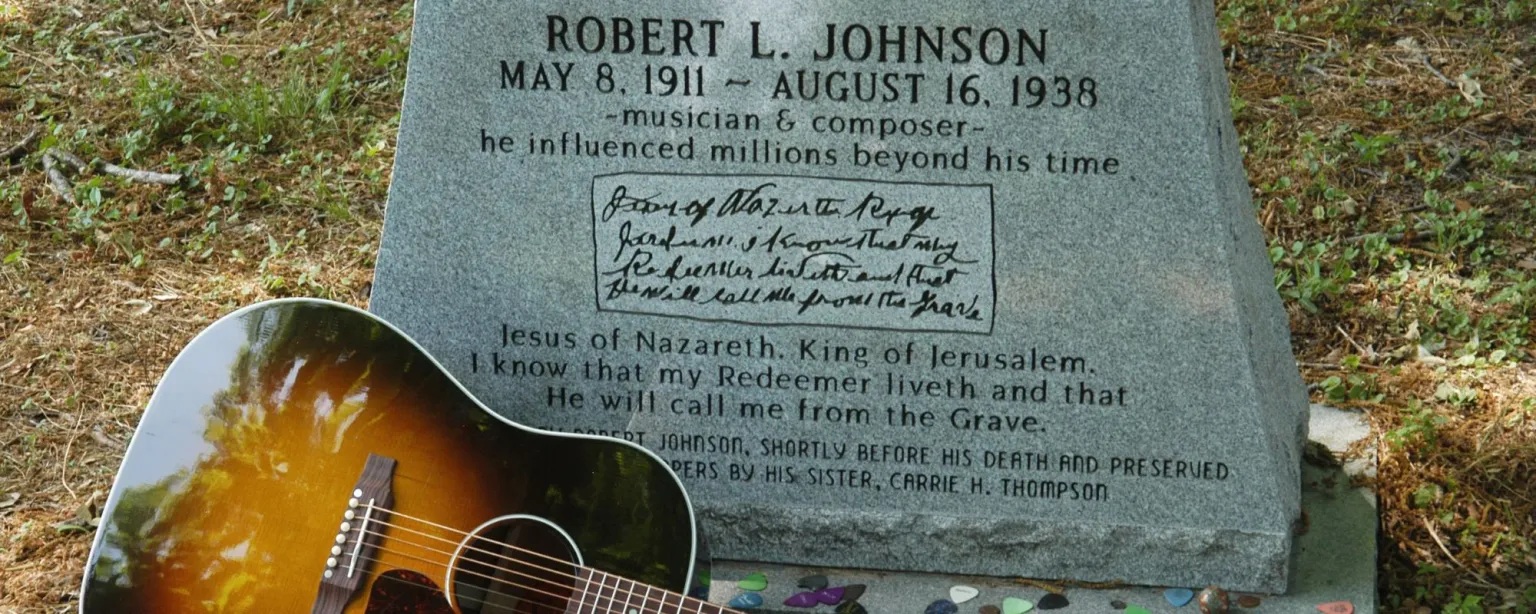 ROBERT L. JOHNSON
MAY 8, 1911 ~ AUGUST 16, 1938
~musician & composer~
he influenced millions beyond his time
Jesus of Nazareth King of
Jerdusm. i know that my
Redeemer liveth and that
He will call me from the Grave
Jesus of Nazareth. King of Jerusalem.
I know that my Redeemer liveth and that
He will call me from the Grave.
ROBERT JOHNSON, SHORTLY BEFORE HIS DEATH AND PRESERVED
BY HIS SISTER, CARRIE H. THOMPSON